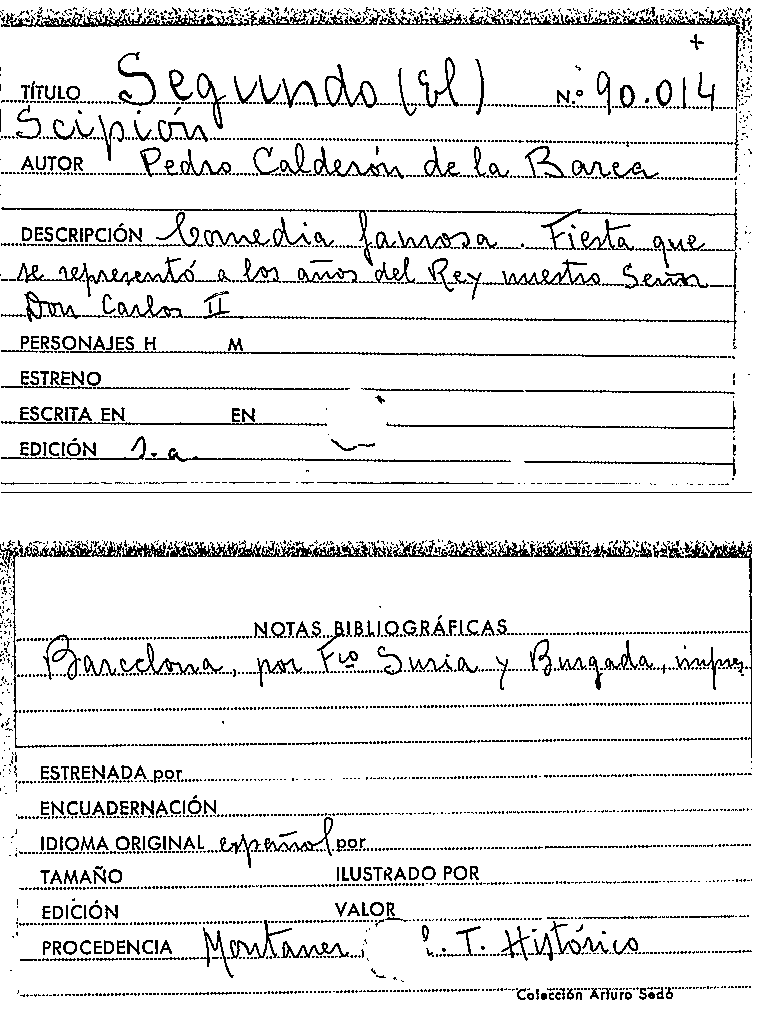 +
TÍTULO Segundo (El) N.º 90.014
Scipión
AUTOR Pedro Calderón de la Barca
DESCRIPCIÓN Comedia famosa. Fiesta que
se representó a los años del Rey nuestro Señor
Don Carlos II
PERSONAJES H M
ESTRENO
ESCRITA EN EN
EDICIÓN 1.a
NOTAS BIBLIOGRÁFICAS
Barcelona, por Fco Suria y Burgada, impre
ESTRENADA por
ENCUADERNACIÓN
IDIOMA ORIGINAL español por
TAMAÑO ILUSTRADO POR
EDICIÓN VALOR
PROCEDENCIA Montaner T. Histórico
Colección Arturo Sedó